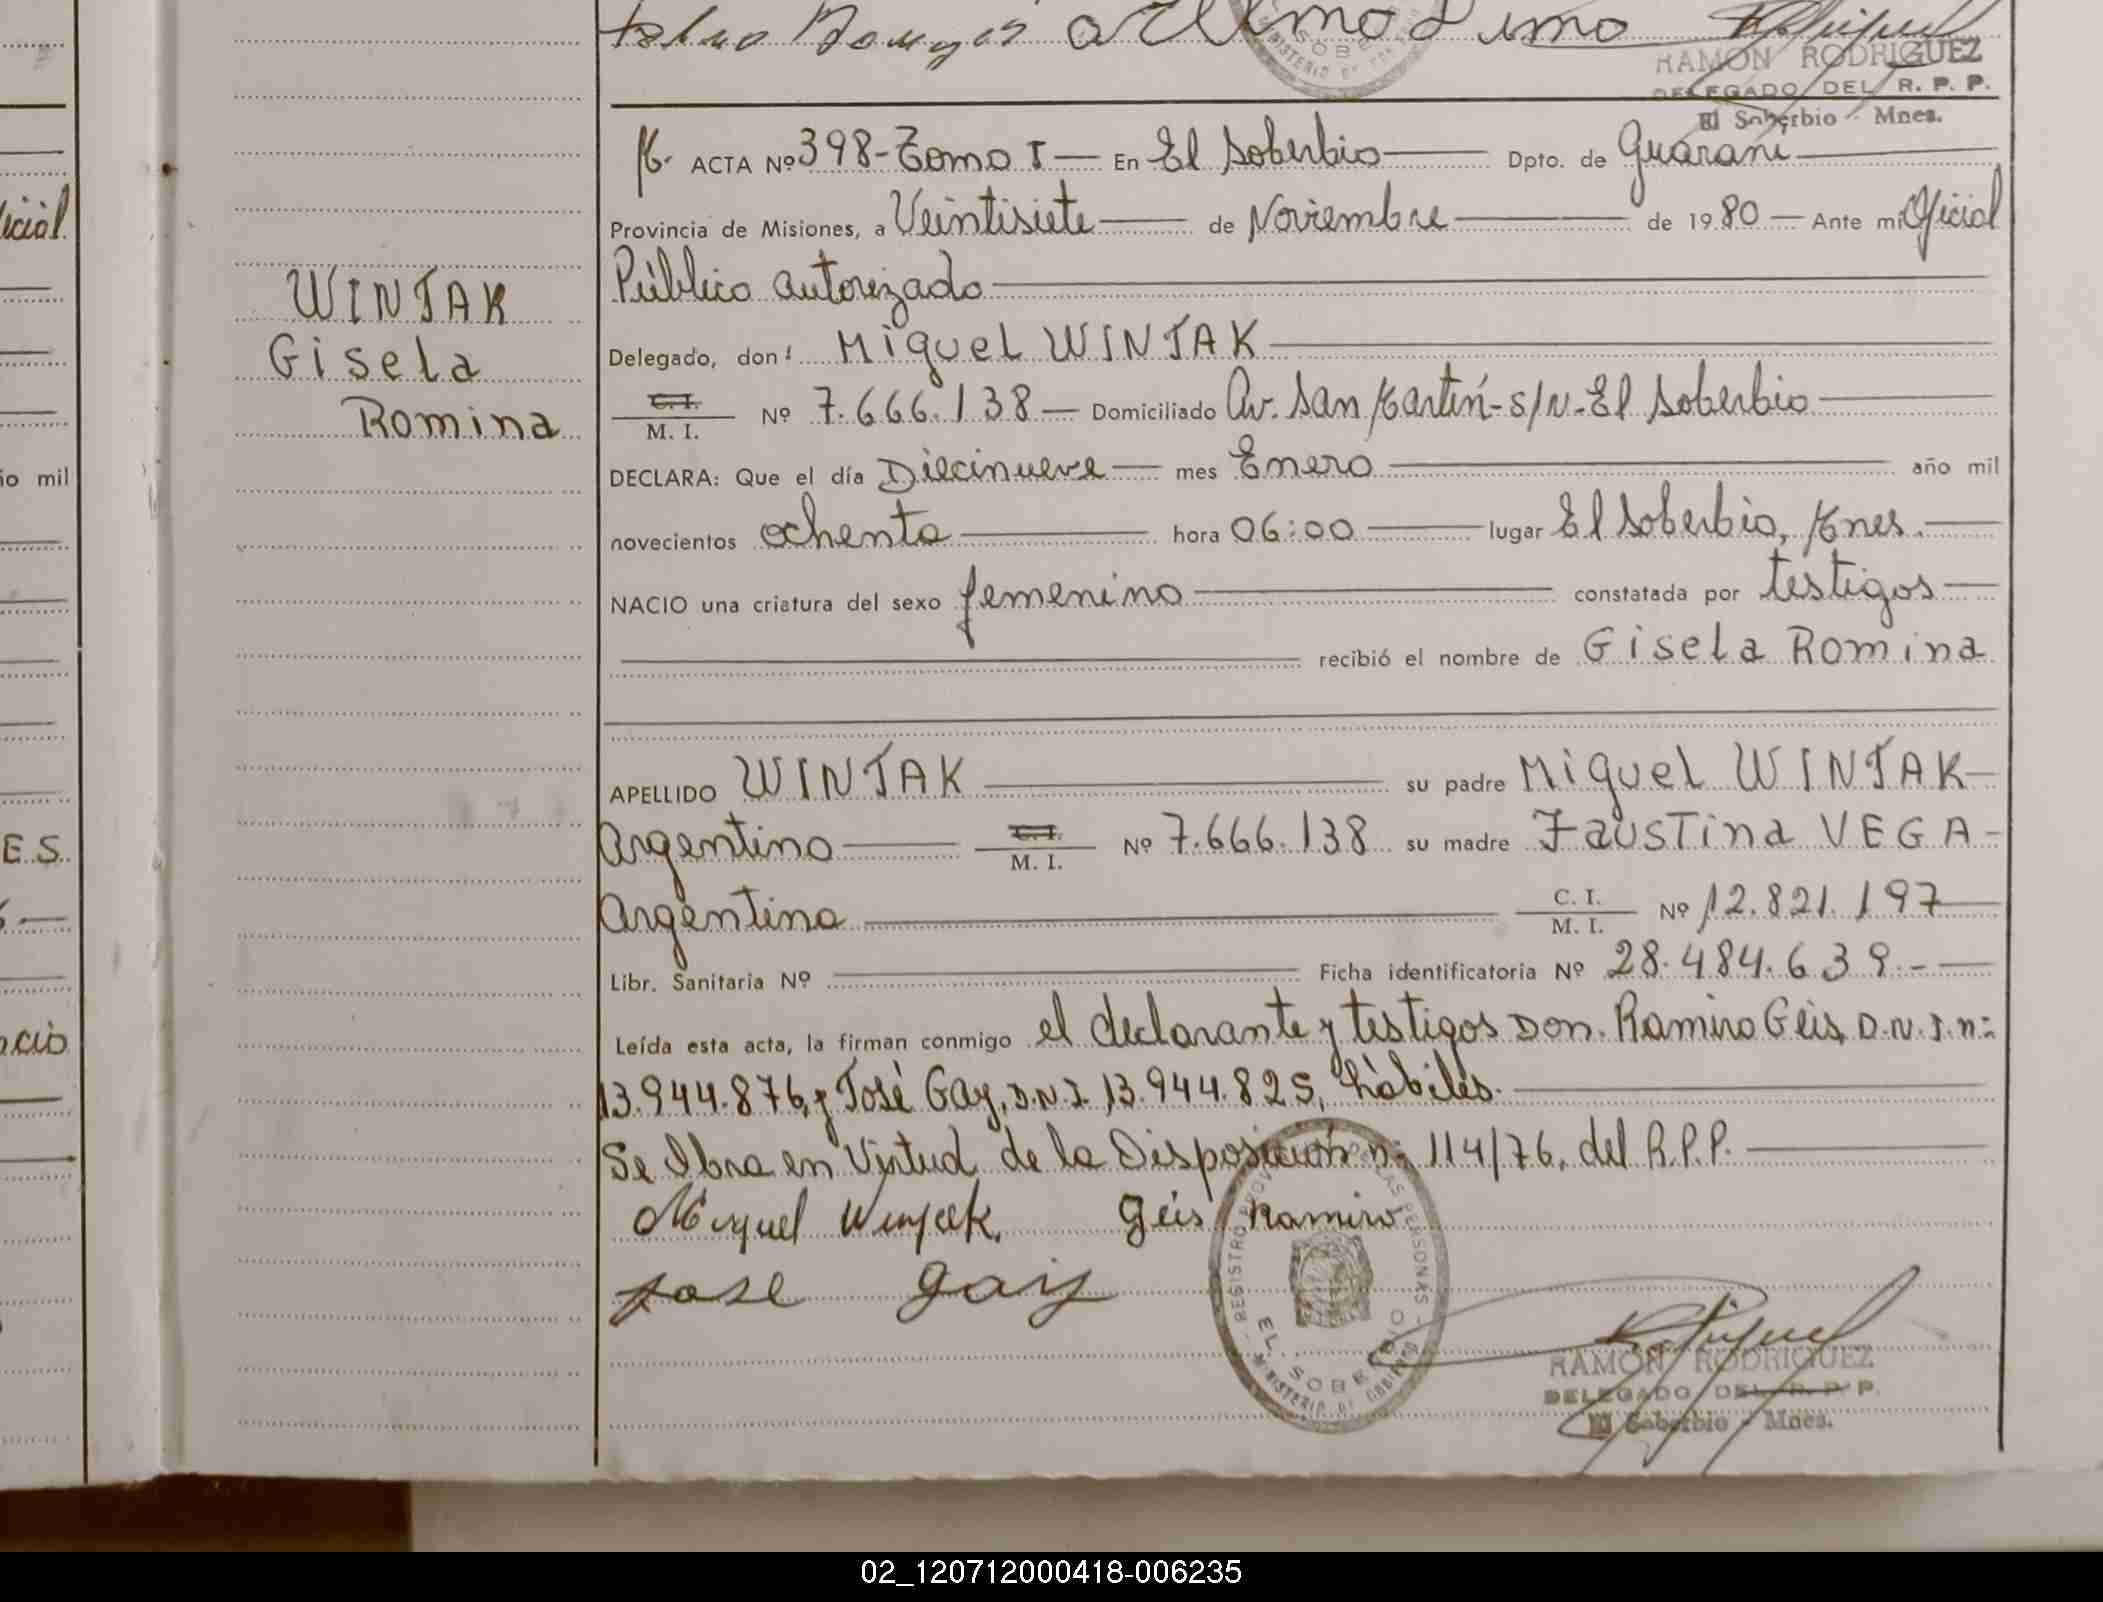 RAMON RODRIGUEZ
DELEGADO DEL R. P. P.
El Soberbio - Mnes.
ACTA Nº 398-Tomo I — En El Soberbio — Dpto. de Guarani —
Provincia de Misiones, a Veintisiete — de Noviembre — de 1980 — Ante mi Oficial
Público autorizado —
Delegado, don: Miguel WINJAK —
C. I. / M. I. Nº 7.666.138 — Domiciliado Av. San Martín - S/N - El Soberbio —
DECLARA: Que el día Diecinueve — mes Enero — año mil
novecientos ochenta — hora 06:00 — lugar El Soberbio, Mnes. —
NACIO una criatura del sexo femenino — constatada por testigos —
— recibió el nombre de Gisela Romina
APELLIDO WINJAK — su padre Miguel WINJAK —
Argentino — C. I. / M. I. Nº 7.666.138 su madre Faustina VEGA -
Argentina — C. I. / M. I. Nº 12.821.197
Libr. Sanitaria Nº — Ficha identificatoria Nº 28.484.639.-—
Leída esta acta, la firman conmigo el declarante y testigos Don. Ramiro Géis, D.N.I. n:
13.944.876, y José Gay, D.N.I. 13.944.825, hábiles. —
Se Obra en Virtud de la Disposición n: 114/76, del R.P.P. —
Miguel Winjak. Géis Ramiro
Jose Gay
REGISTRO PROV. DE LAS PERSONAS
EL SOBERBIO
MINISTERIO DE GOBIERNO
RAMON RODRIGUEZ
DELEGADO DEL R. P. P.
El Soberbio - Mnes.
WINJAK
Gisela
Romina
icial
io mil
ES.
02_120712000418-006235